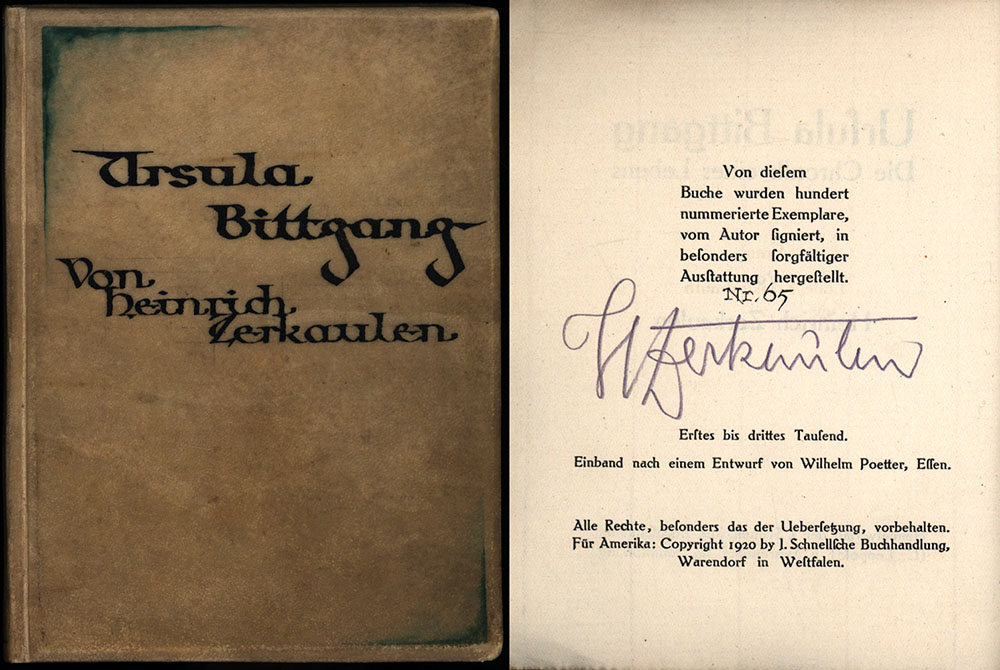 Ursula
Bittgang
Von
Heinrich
Zerkaulen
Von dieſem
Buche wurden hundert
nummerierte Exemplare,
vom Autor ſigniert, in
beſonders ſorgfältiger
Ausſtattung hergeſtellt.
Nr. 65
H Zerkaulen
Erſtes bis drittes Tauſend.
Einband nach einem Entwurf von Wilhelm Poetter, Eſſen.
Alle Rechte, beſonders das der Ueberſetzung, vorbehalten.
Für Amerika: Copyright 1920 by J. Schnellſche Buchhandlung,
Warendorf in Weſtfalen.
Urſula Bittgang